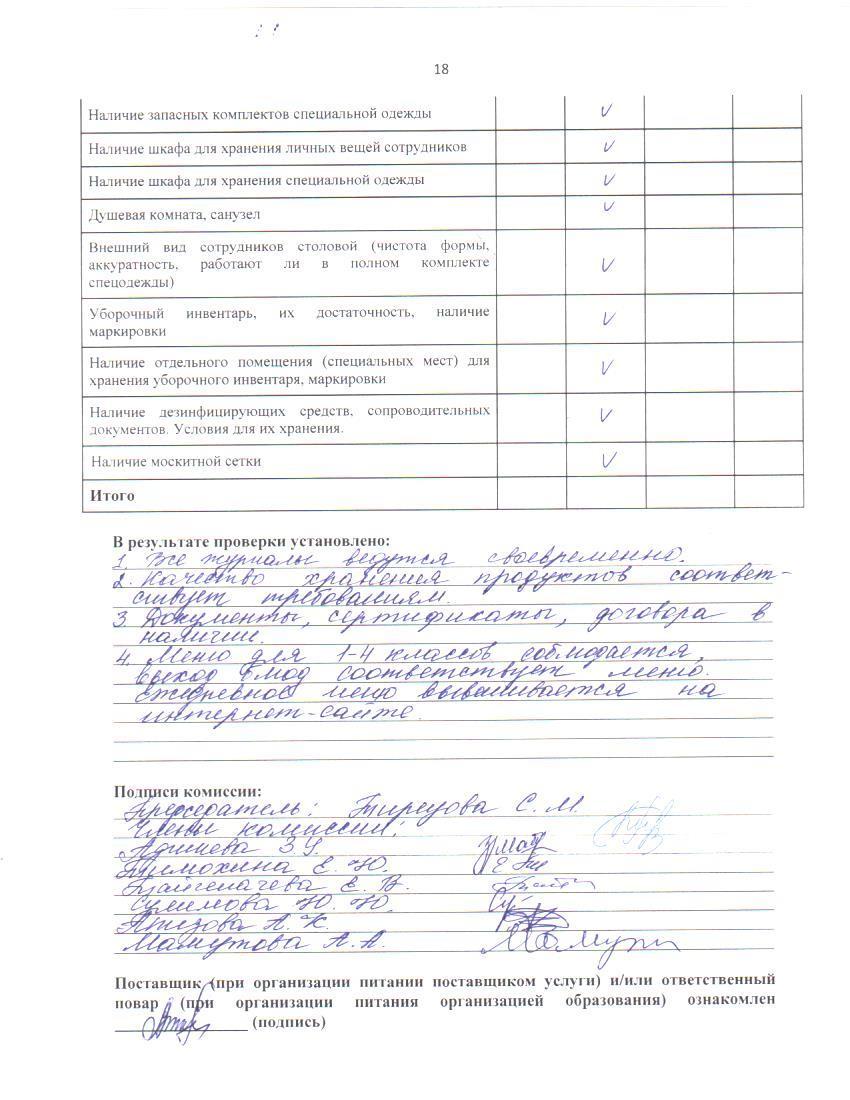 18
Наличие запасных комплектов специальной одежды
Наличие шкафа для хранения личных вещей сотрудников
Наличие шкафа для хранения специальной одежды
Душевая комната, санузел
Внешний вид сотрудников столовой (чистота формы,
аккуратность, работают ли в полном комплекте
спецодежды)
Уборочный инвентарь, их достаточность, наличие
маркировки
Наличие отдельного помещения (специальных мест) для
хранения уборочного инвентаря, маркировки
Наличие дезинфицирующих средств, сопроводительных
документов. Условия для их хранения.
Наличие москитной сетки
Итого
В результате проверки установлено:
1. Все журналы ведутся своевременно.
2. Качество хранения продуктов соответ-
ствует требованиям.
3. Документы, сертификаты, договора в
наличии.
4. Меню для 1-4 классов соблюдается,
выход блюд соответствует меню.
Ежедневное меню вывешивается на
интернет-сайте.
Подписи комиссии:
Председатель: С. М.
Члены комиссии:
З У.
Е. Ю.
Е. В.
Ю. Ю.
А. К.
Мамутова А. А.
Поставщик (при организации питании поставщиком услуги) и/или ответственный
повар (при организации питания организацией образования) ознакомлен
(подпись)